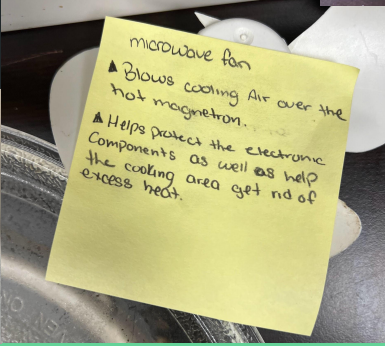 microwave fan
▲ Blows cooling Air over the
hot magnetron.
▲ Helps protect the electronic
components as well as help
the cooking area get rid of
excess heat.